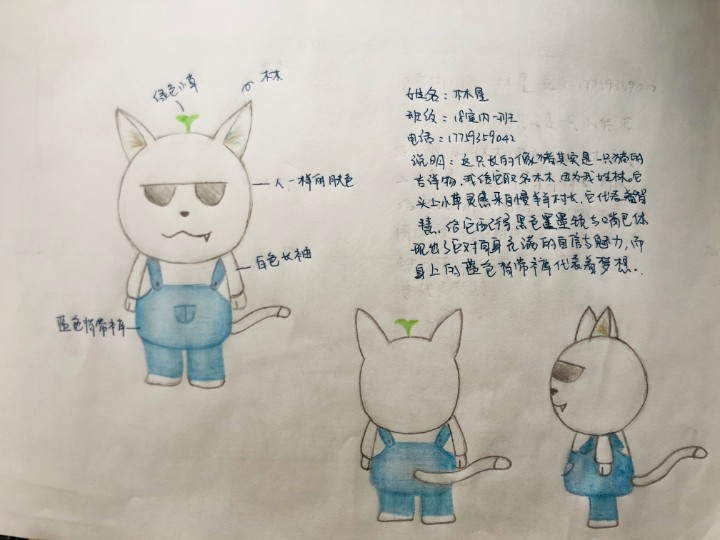 绿色小草
木木
人一样的肤色
白色长袖
蓝色背带裤
姓名：林星
班级：18室内一班
电话：17739359042
说明：这只长的像猪其实是一只猫的
吉祥物.我给它取名木木因为我姓林.它
头上小草灵感来自慢羊羊村长.它代表着智
慧.给它配得黑色墨镜与嘴巴体
现出它对自身充满的自信与魅力,而
身上的蓝色背带裤代表着梦想.